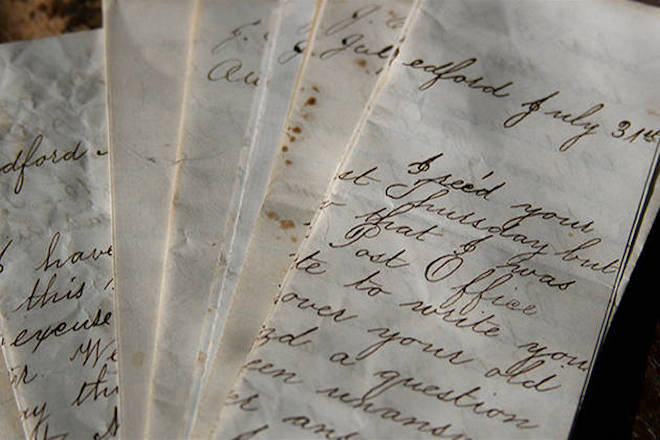 dford
have
this
excuse
r. We
ay th
Au
Jul
edford July 31st
I rec'd your
st Thursday but
that I was
Post Office
te to write you
over your old
d a question
een unansw